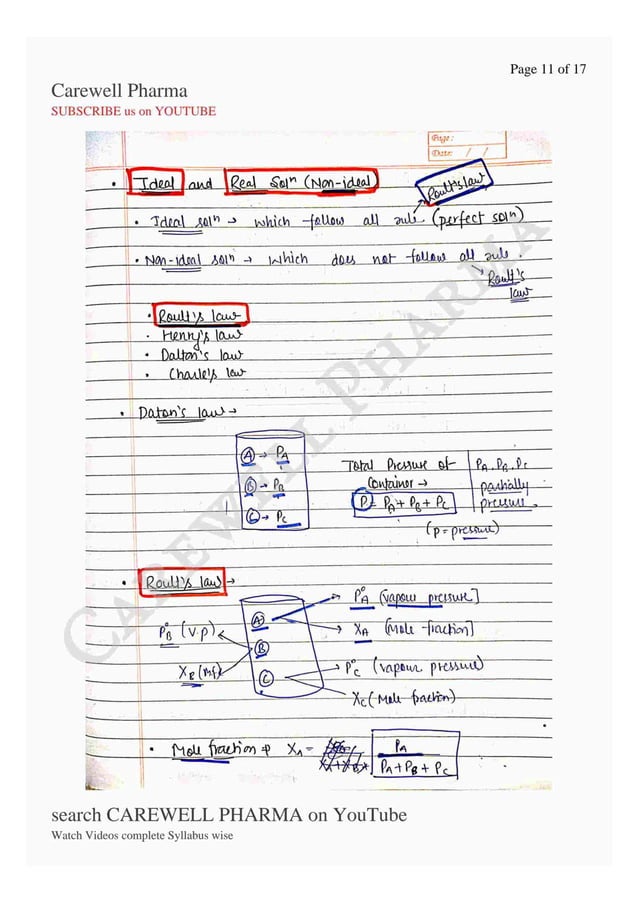 Page 11 of 17
Carewell Pharma
SUBSCRIBE us on YOUTUBE
Page:
Date: / /
• Ideal and Real Solⁿ (Non-ideal)
Roult's law
• Ideal solⁿ → which follow all rule (perfect solⁿ)
• Non-ideal solⁿ → which does not follow all rule.
Roult's
law
• Roult's law
• Henry's law
• Dalton's law
• Charle's law
• Daton's law →
A → PA
B → PB
C → PC
Total Pressure of
Container →
P = PA + PB + PC
(P = pressure)
PA, PB, PC
partially
pressure
• Roult's law →
P°B (v.p)
XB (mf)
A
B
C
P°A (vapour pressure]
XA (Mole fraction]
P°C (vapour pressure)
XC (Mole fraction)
• Mole fraction of XA = PA
PA + PB + PC
CAREWELL PHARMA
search CAREWELL PHARMA on YouTube
Watch Videos complete Syllabus wise